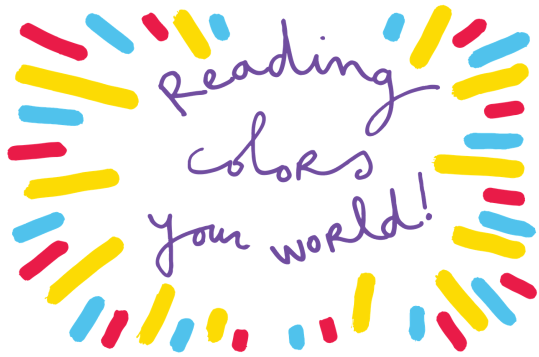 Reading
colors
your world!